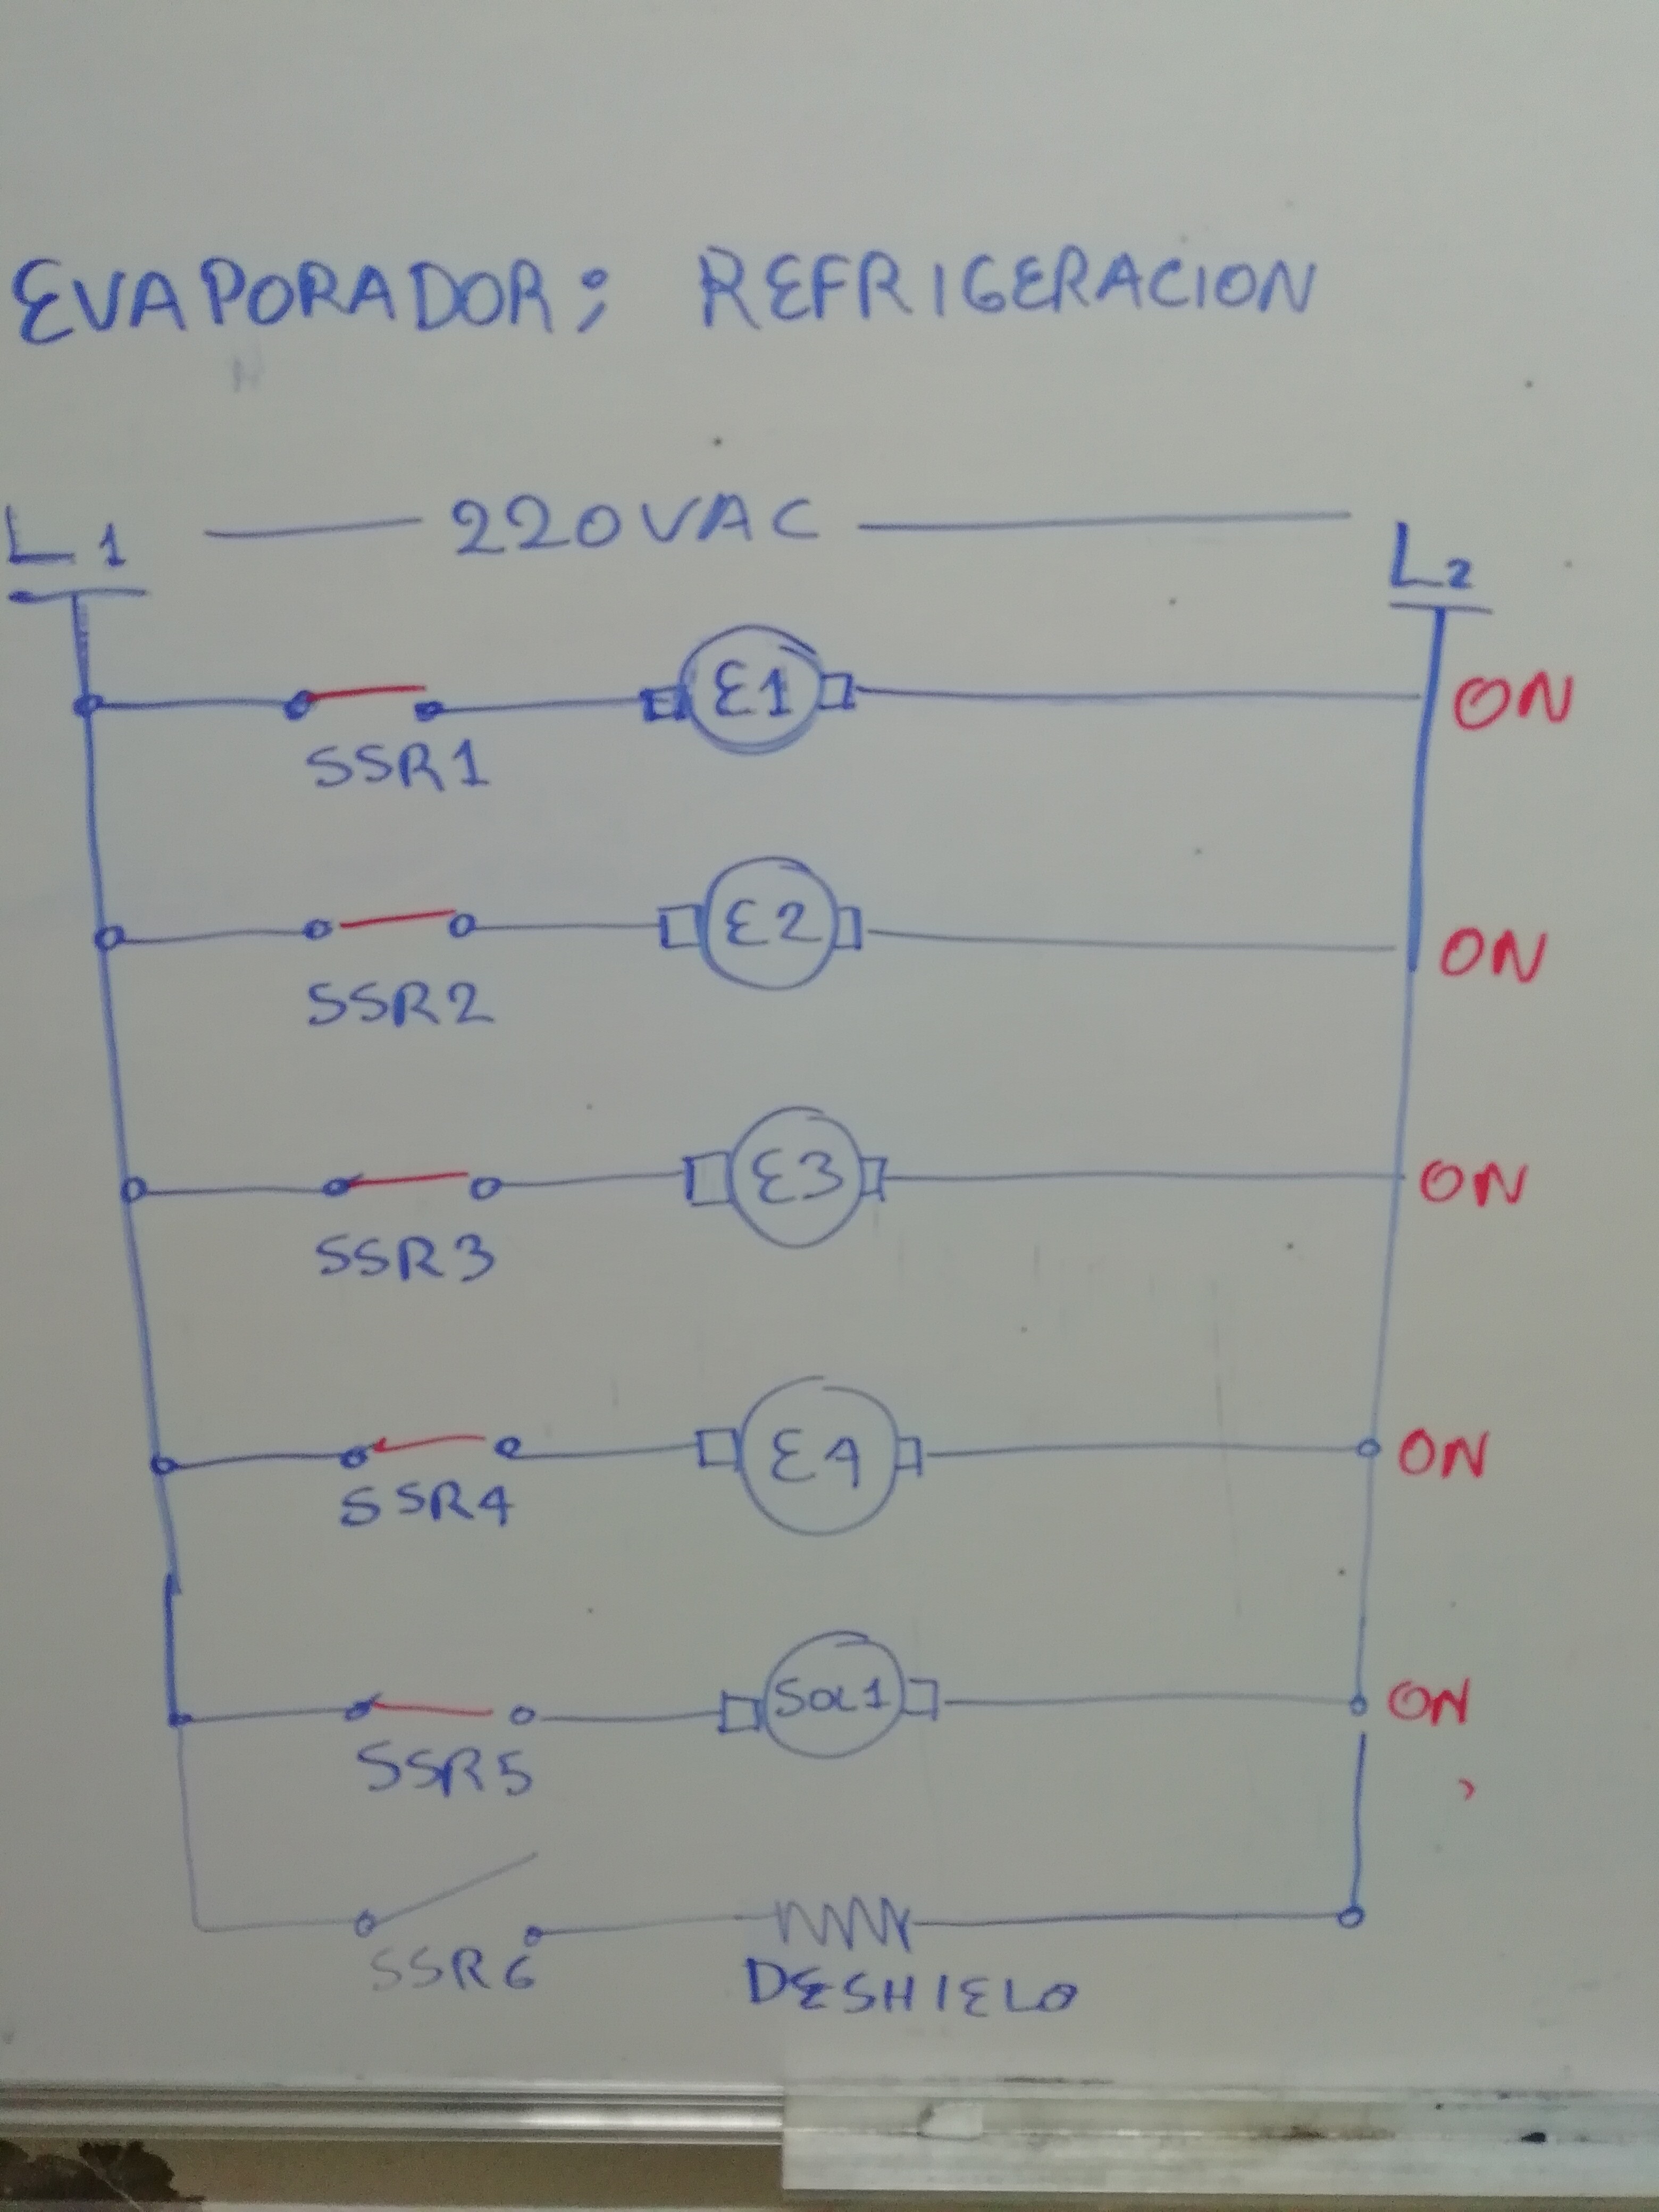 EVAPORADOR; REFRIGERACION
L1 220VAC L2
E1 ON
SSR1
E2 ON
SSR2
E3 ON
SSR3
E4 ON
SSR4
SOL1 ON
SSR5
SSR6
DESHIELO